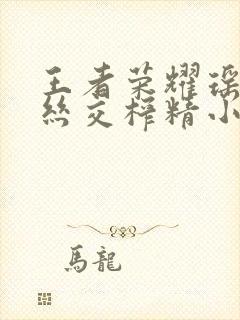 王者荣耀瑶
丝交榨精小
馬龍